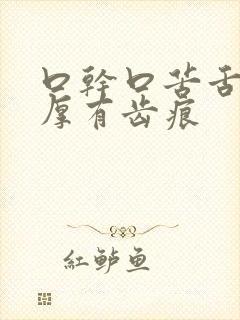 口幹口苦舌
厚有齿痕
紅鲈鱼